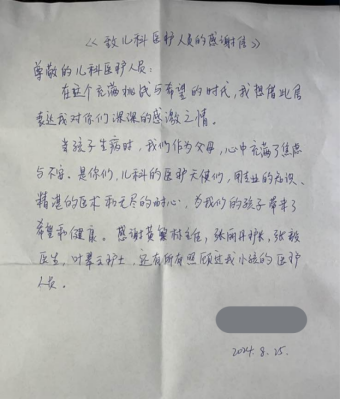 《致儿科医护人员的感谢信》
尊敬的儿科医护人员:
在这个充满挑战与希望的时代,我想借此信
表达我对你们深深的感激之情。
当孩子生病时,我们作为父母,心中充满了焦虑
与不安。是你们,儿科的医护天使们,用专业的知识、
精湛的医术和无尽的耐心,为我们的孩子带来了
希望和健康。感谢黄 主任,张丽 护长,张
医生,叶 护士,还有所有照顾过我小孩的医护
人员。
2024.8.25.